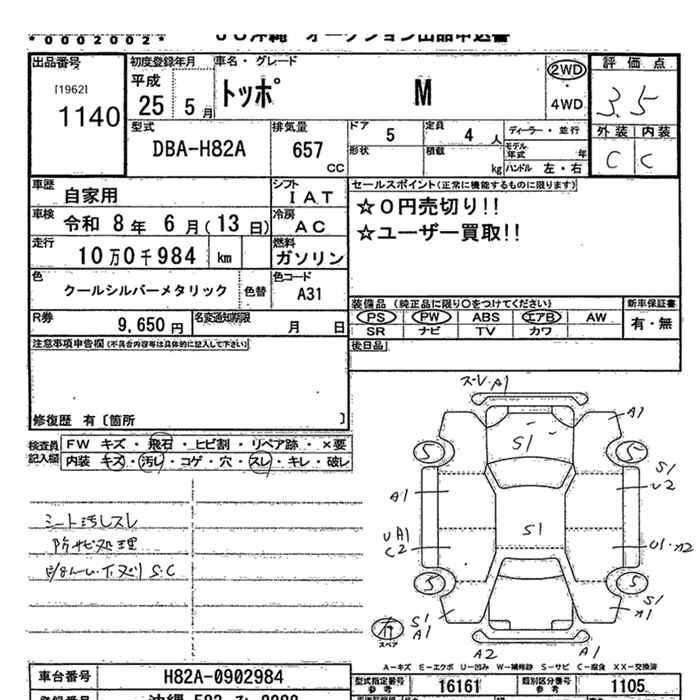 *0002002*
JU沖縄 オークション出品申込書
出品番号
[1962]
1140
初度登録年月
平成
25年 5月
車名・グレード
トッポ M
2WD
・
4WD
評価点
3.5
外装 内装
C C
型式
DBA-H82A
排気量
657
CC
ドア 5
定員 4人
形状
積載 kg
ディーラー・並行
モデル年式 年
ハンドル 左・右
車歴
自家用
シフト
IAT
車検
令和 8年 6月(13日)
冷房
AC
走行
10万0千984 km
燃料
ガソリン
色
クールシルバーメタリック
色替
色コード
A31
R券
9,650円
名変通知期限
月 日
セールスポイント(正常に機能するものに限ります)
☆0円売切り!!
☆ユーザー買取!!
装備品 (純正品に限り○をつけてください)
新車保証書
PS PW ABS エアB AW
SR ナビ TV カワ
有・無
後日品
注意事項申告欄(不具合内容等は具体的に記入して下さい)
修復歴 有〔箇所 〕
検査員記入欄
FW キズ・飛石・ヒビ割・リペア跡・×要
内装 キズ・汚レ・コゲ・穴・スレ・キレ・破レ
シート汚レスレ
防サビ処理
S.C
A1
A1
S1
5
5
S1
U2
A1
S1
UA1
C2
5
5
S1
S1
A1
スペア
A2
A1
A-キズ E-エクボ U-凹み W-補修跡 S-サビ C-腐食 XX-交換済
車台番号
H82A-0902984
型式指定番号
参考
16161
類別区分番号
参考
1105